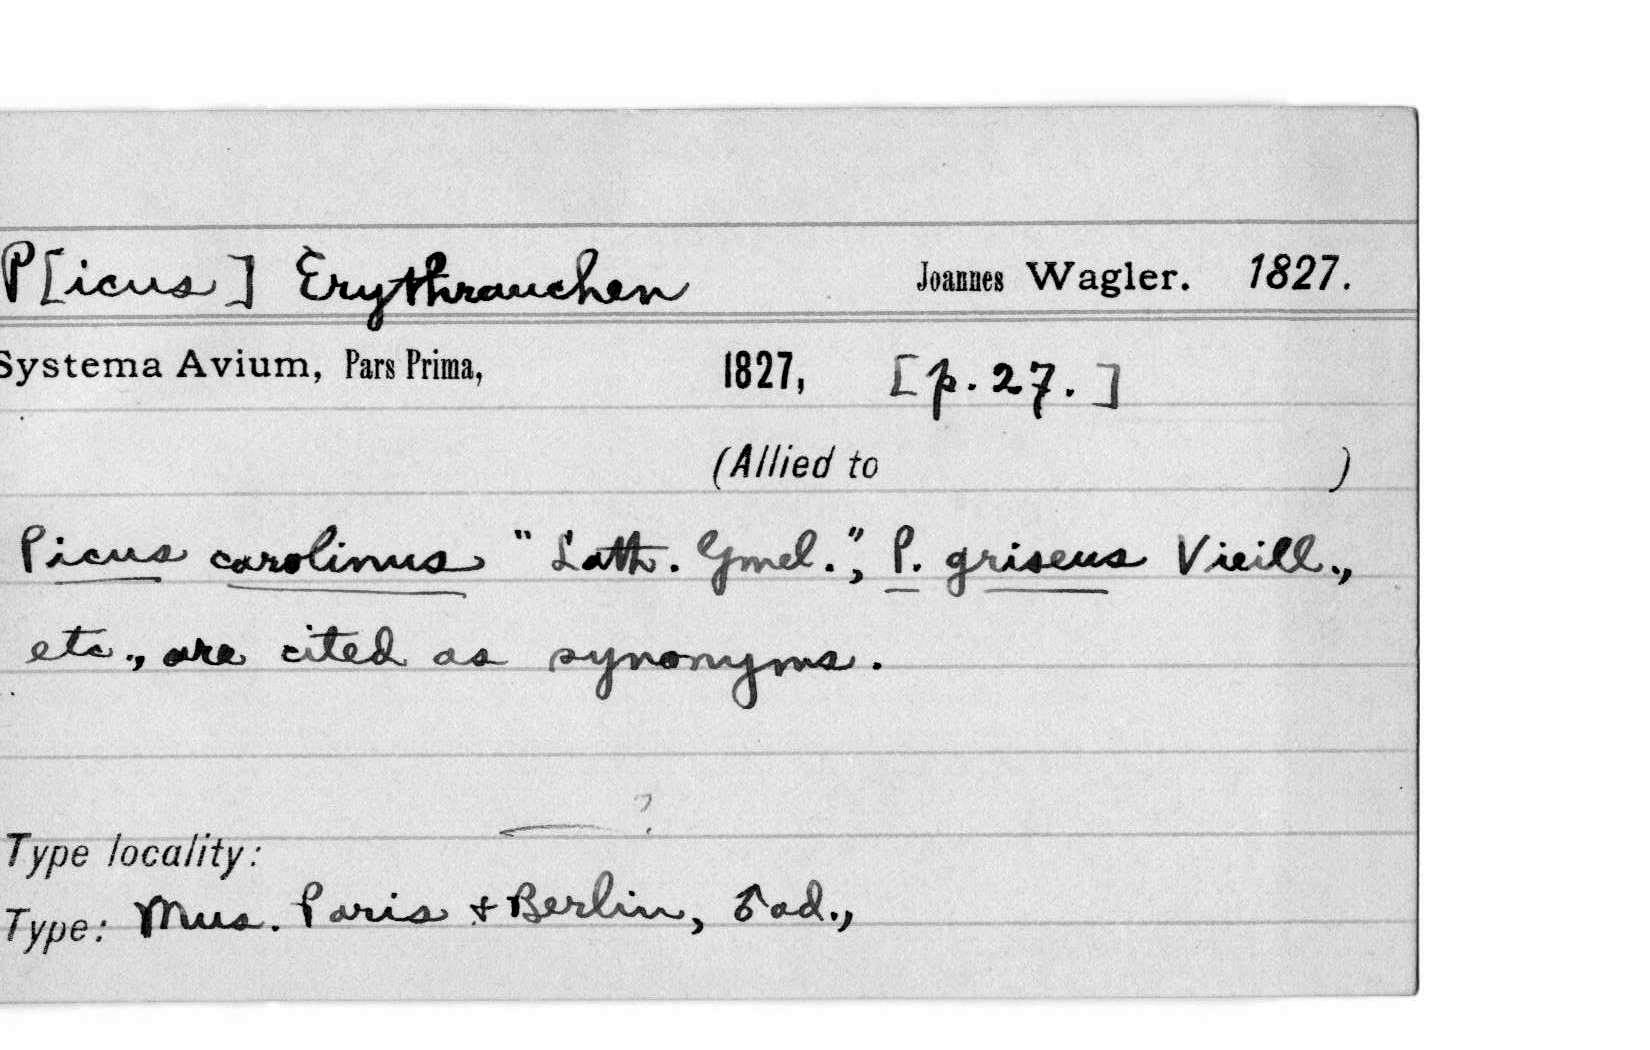 P[icus] Erythrauchen Joannes Wagler. 1827.
Systema Avium, Pars Prima, 1827, [p. 27.]
(Allied to )
Picus carolinus "Lath. Gmel.", P. griseus Vieill.,
etc., are cited as synonyms.
?
Type locality:
Type: Mus. Paris & Berlin, ♂ad.,